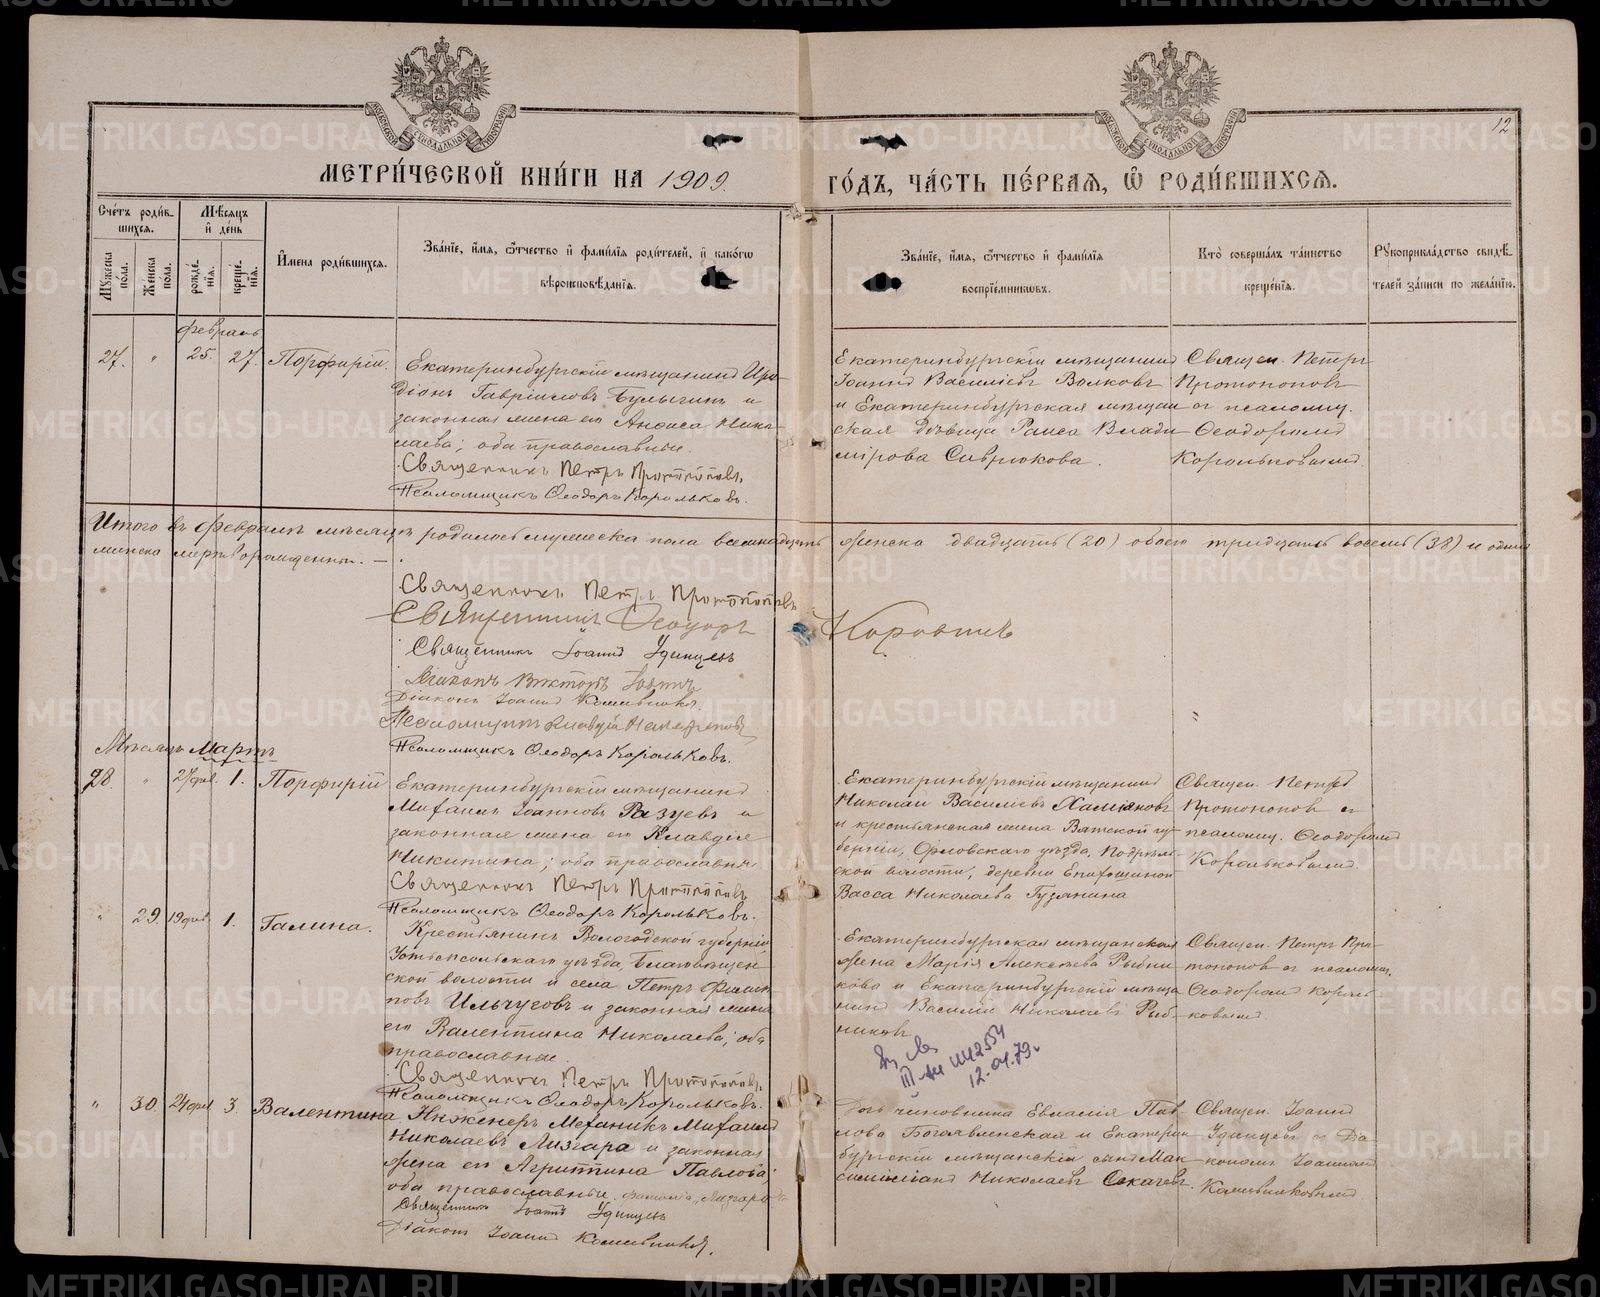 12
МЕТРИ́ЧЕСКОЙ КНИ́ГИ НА 1909.
ГО́ДЪ, ЧА́СТЬ ПЕ́РВАѦ, Ѡ҆ РОДИ́ВШИХСѦ.
Сче́тъ роди́в-
шихсѧ.
Мѣ́сѧцъ
и҆ де́нь
Мꙋ́жеска
по́ла.
Же́нска
по́ла.
рожде́-
нїѧ.
креще́-
нїѧ.
И҆́мена роди́вшихсѧ.
Зва́нїе, и҆́мѧ, ѻ҆́тчество и҆ фами́лїѧ роди́телей, и҆ како́гѡ
вѣроисповѣ́данїѧ.
Зва́нїе, и҆́мѧ, ѻ҆́тчество и҆ фами́лїѧ
воспрїе́мникѡвъ.
Кто̀ соверша́лъ та́инство
креще́нїѧ.
Рꙋкоприкла́дство свидѣ́-
телей за́писи по жела́нїю.
февраль
27. " 25. 27. Порфирій.
Екатеринбургскій мѣщанинъ Иро-
діонъ Гавріиловъ Булычинъ и
законная жена его Анфиса Нико-
лаева; оба православные.
Священникъ Петръ Протопоповъ.
Псаломщикъ Ѳеодоръ Корольковъ.
Екатеринбургскій мѣщанинъ
Іоаннъ Василіевъ Волковъ
и Екатеринбургская мѣщан
ская дѣвица Раиса Влади
мірова Саврюкова.
Священ. Петръ
Протопоповъ
съ псаломщ.
Ѳеодоромъ
Корольковымъ.
Итого въ февралѣ мѣсяцѣ родилось мужеска пола восемнадцать женска двадцать (20) обоего тридцать восемь (38) и одинъ
женска мертворожденный. —
Священникъ Петръ Протопоповъ
Священникъ Ѳеодоръ Коровинъ
Священникъ Іоаннъ Удинцевъ
Діаконъ Викторъ
Діаконъ Іоаннъ
Псаломщикъ
Псаломщикъ Ѳеодоръ Корольковъ.
Мѣсяцъ Мартъ
28. " 27 фев. 1. Порфирій
Екатеринбургскій мѣщанинъ
Михаилъ Іоанновъ Разуевъ и
законная жена его Клавдія
Никитина; оба православные
Священникъ Петръ Протопоповъ
Псаломщикъ Ѳеодоръ Корольковъ.
Екатеринбургскій мѣщанинъ
Николай Василіевъ Халияновъ
и крестьянская жена Вятской гу-
берніи, Орловскаго уѣзда, Подрель-
ской волости, деревни Епифошиной
Васса Николаева Гузянина
Священ. Петръ
Протопоповъ съ
псаломщ. Ѳеодоромъ
Корольковымъ.
" 29. 19 фев. 1. Галина.
Крестьянинъ Вологодской губерніи
Устьсысольскаго уѣзда, Благовѣщен
ской волости и села Петръ Филип
повъ Ильчуговъ и законная жена
его Валентина Николаева; оба
православные.
Священникъ Петръ Протопоповъ.
Псаломщикъ Ѳеодоръ Корольковъ.
Екатеринбургская мѣщанская
жена Марія Алексѣева Рыбни
кова и Екатеринбургскій мѣща
нинъ Василій Николаевъ Рыб-
никовъ
Священ. Петръ Про-
топоповъ съ псаломщ.
Ѳеодоромъ Король-
ковымъ.
12.04.79г
" 30. 24 фев. 3. Валентина
Инженеръ Механикъ Михаилъ
Николаевъ Лизгара и законная
жена его Агриппина Павлова;
оба православные.
Священникъ Іоаннъ Удинцевъ
Діаконъ Іоаннъ
Дочь чиновника Евлалія Пав-
лова Богоявленская и Екатерин
бургскій мѣщанскій сынъ Мак
симиліанъ Николаевъ Секачевъ.
Священ. Іоаннъ
Удинцевъ съ Діа-
кономъ Іоанномъ